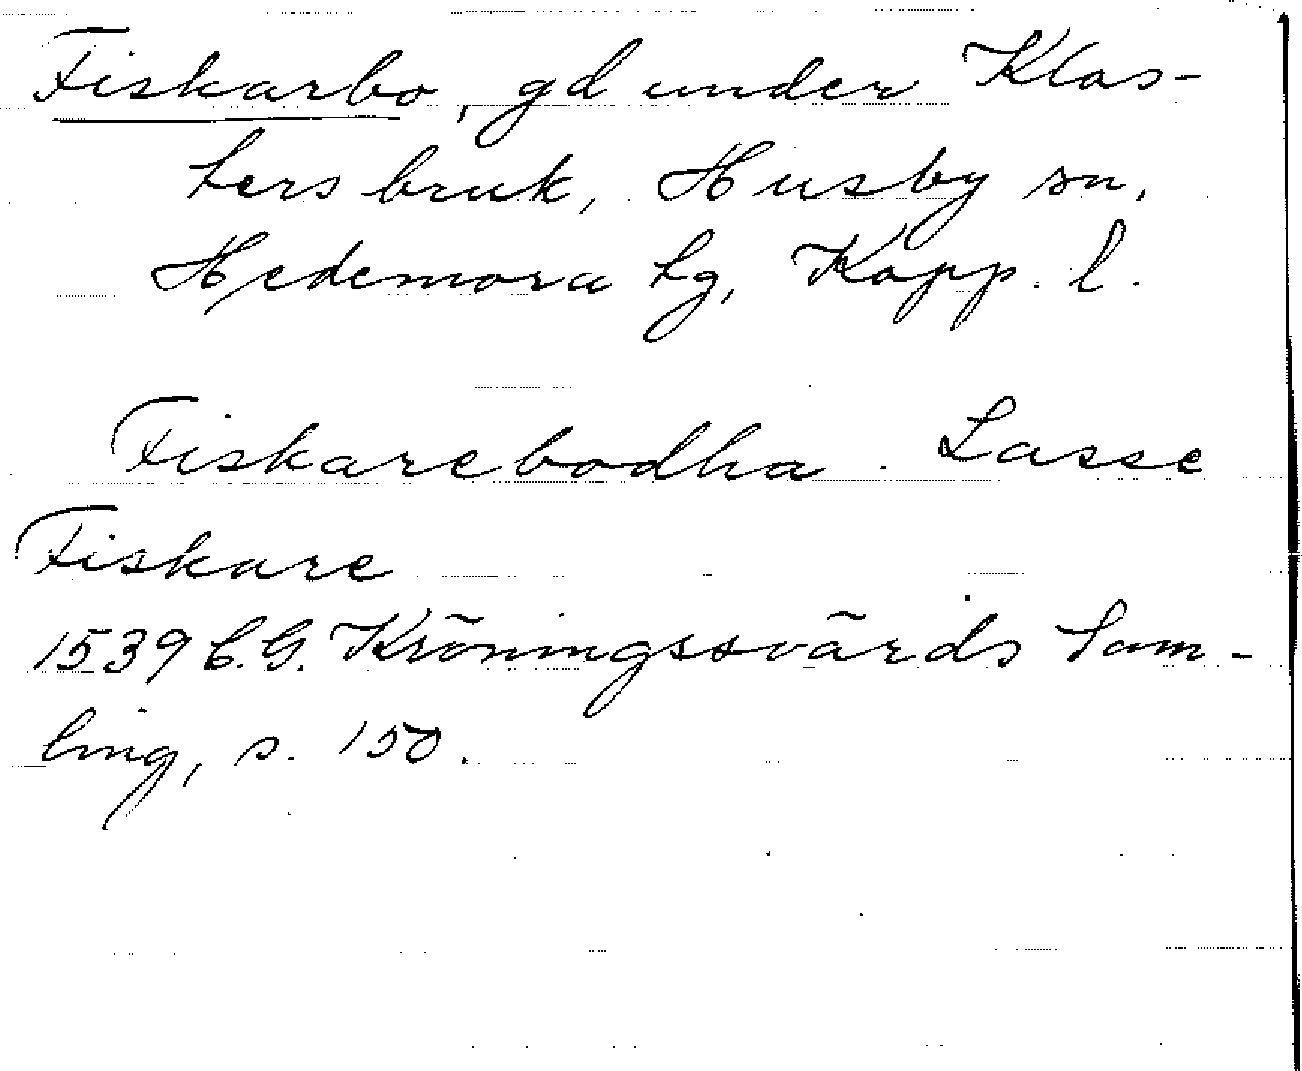 Fiskarbo, gd under Klos-
ters bruk, Husby sn,
Hedemora tg, Kopp. l.
Fiskarebodha. Lasse
Fiskare
1539 C.G. Kröningssvärds Sam-
ling, s. 150.